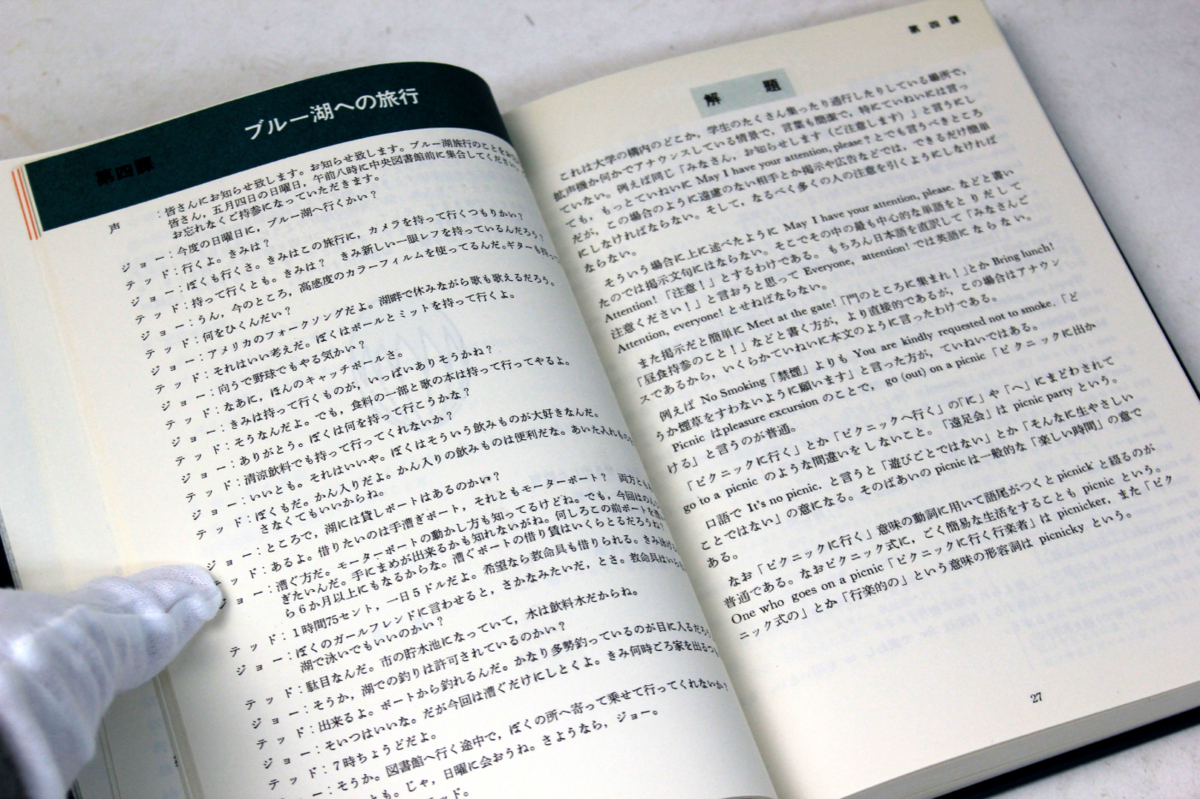 第四課
ブルー湖への旅行
声　：皆さんにお知らせ致します。お知らせ致します。ブルー湖旅行のことを
皆さん，五月四日の日曜日，午前八時に中央図書館前に集合してください。
お忘れなくご持参になっていただきます。
ジョー：今度の日曜日に，ブルー湖へ行くかい？
テッド：行くよ。きみは？
ジョー：ぼくも行くさ。きみはこの旅行に，カメラを持って行くつもりかい？
テッド：持って行くとも。きみは？　きみ新しい一眼レフを持っているんだろう？
ジョー：うん，今のところ，高感度のカラーフィルムを使ってるんだ。ギターも持っ
テッド：何をひくんだい？
ジョー：アメリカのフォークソングだよ。湖畔で休みながら歌も歌えるだろう。
テッド：それはいい考えだ。ぼくはボールとミットを持って行くよ。
ジョー：向うで野球でもやる気かい？
テッド：なあに，ほんのキャッチボールさ。
ジョー：きみは持って行くものが，いっぱいありそうかね？
テッド：そうなんだよ。でも，食料の一部と歌の本は持って行ってやるよ。
ジョー：ありがとう。ぼくは何を持って行こうかな？
テッド：清涼飲料でも持って行ってくれないか？
ジョー：いいとも。それはいいや。ぼくはそういう飲みものが大好きなんだ。
テッド：ぼくもだ。かん入りだよ。かん入りの飲みものは便利だな。あいた入れもの
さなくてもいいからね。
ジョー：ところで，湖には貸しボートはあるのかい？
テッド：あるよ。借りたいのは手漕ぎボート，それともモーターボート？　両方とも
ジョー：漕ぐ方だ。モーターボートの動かし方も知ってるけどね。でも，今回は
ぎたいんだ。手にまめが出来るかも知れないがね。何しろこの前ボートを
ら６か月以上にもなるからな。漕ぐボートの借り賃はいくらとるだろうね？
テッド：１時間75セント，一日５ドルだよ。希望なら救命具も借りられる。きみ
ジョー：ぼくのガールフレンドに言わせると，さかなみたいだ，とさ。救命具は
湖で泳いでもいいのかい？
テッド：駄目なんだ。市の貯水池になっていて，水は飲料水だからね。
ジョー：そうか，湖での釣りは許可されているのかい？
テッド：出来るよ。ボートから釣れるんだ。かなり多勢釣っているのが目に入るだろう
ジョー：そいつはいいな。だが今回は漕ぐだけにしとくよ。きみ何時ごろ家を出るつ
テッド：７時ちょうどだよ。
ジョー：そうか。図書館へ行く途中で，ぼくの所へ寄って乗せて行ってくれないか？
とも。じゃ，日曜に会おうね。さようなら，ジョー。
テッド。
第四課
解　題
これは大学の構内のどこか，学生のたくさん集ったり通行したりしている場所で，
拡声機か何かでアナウンスしている情景で，言葉も簡潔で，特にていねいには言っ
ていない。例えば同じ「みなさん，お知らせします（ご注意します）」と言うにし
ても，もっとていねいに May I have your attention, please? とでも言うべきところ
だが，この場合のように遠慮のない相手とか掲示や広告などでは，できるだけ簡単
にしなければならない。そして，なるべく多くの人の注意を引くようにしなければ
ならない。
そういう場合に上に述べたように May I have your attention, please. などと書い
たのでは掲示文句にはならない。そこでその中の最も中心的な単語をとりだして
Attention!「注意！」とするわけである。もちろん日本語を直訳して「みなさんご
注意ください！」と言おうと思って Everyone, attention! では英語にならない。
Attention, everyone! とせねばならない。
また掲示だと簡単に Meet at the gate!「門のところに集まれ！」とか Bring lunch!
「昼食持参のこと！」などと書く方が，より直接的であるが，この場合はアナウン
スであるから，いくらかていねいに本文のように言ったわけである。
例えば No Smoking「禁煙」よりも You are kindly requested not to smoke.「ど
うか煙草をすわないように願います」と言った方が，ていねいではある。
Picnic はpleasure excursion のことで， go (out) on a picnic「ピクニックに出か
ける」と言うのが普通。
「ピクニックに行く」とか「ピクニックへ行く」の「に」や「へ」にまどわされて
go to a picnic のような間違いをしないこと。「遠足会」は picnic party という。
口語で It's no picnic. と言うと「遊びごとではない」とか「そんなに生やさしい
ことではない」の意になる。そのばあいの picnic は一般的な「楽しい時間」の意で
ある。
なお「ピクニックに行く」意味の動詞に用いて語尾がつくと picnick と綴るのが
普通である。なおピクニック式に，ごく簡易な生活をすることも picnic という。
One who goes on a picnic「ピクニックに行く行楽者」は picnicker, また「ピク
ニック式の」とか「行楽的の」という意味の形容詞は picnicky という。
27